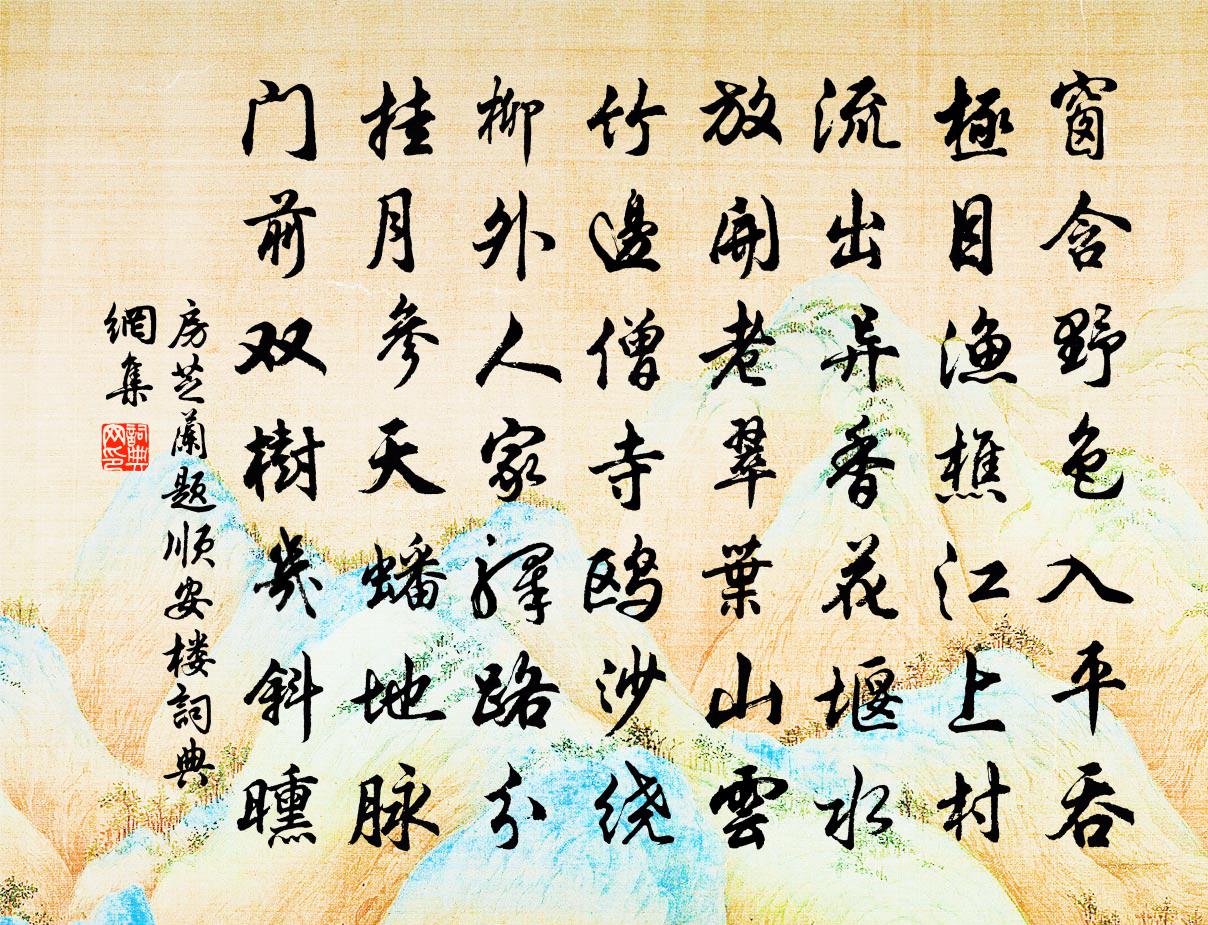 窗含野色入平吞
極目漁樵江上村
流出异香花堰水
放開老翠葉山雲
竹邊僧寺鸥沙绕
柳外人家驛路分
挂月參天蟠地脉
门前双樹幾斜曛
房芝蘭题顺安楼詞典
網集
詞典
网印